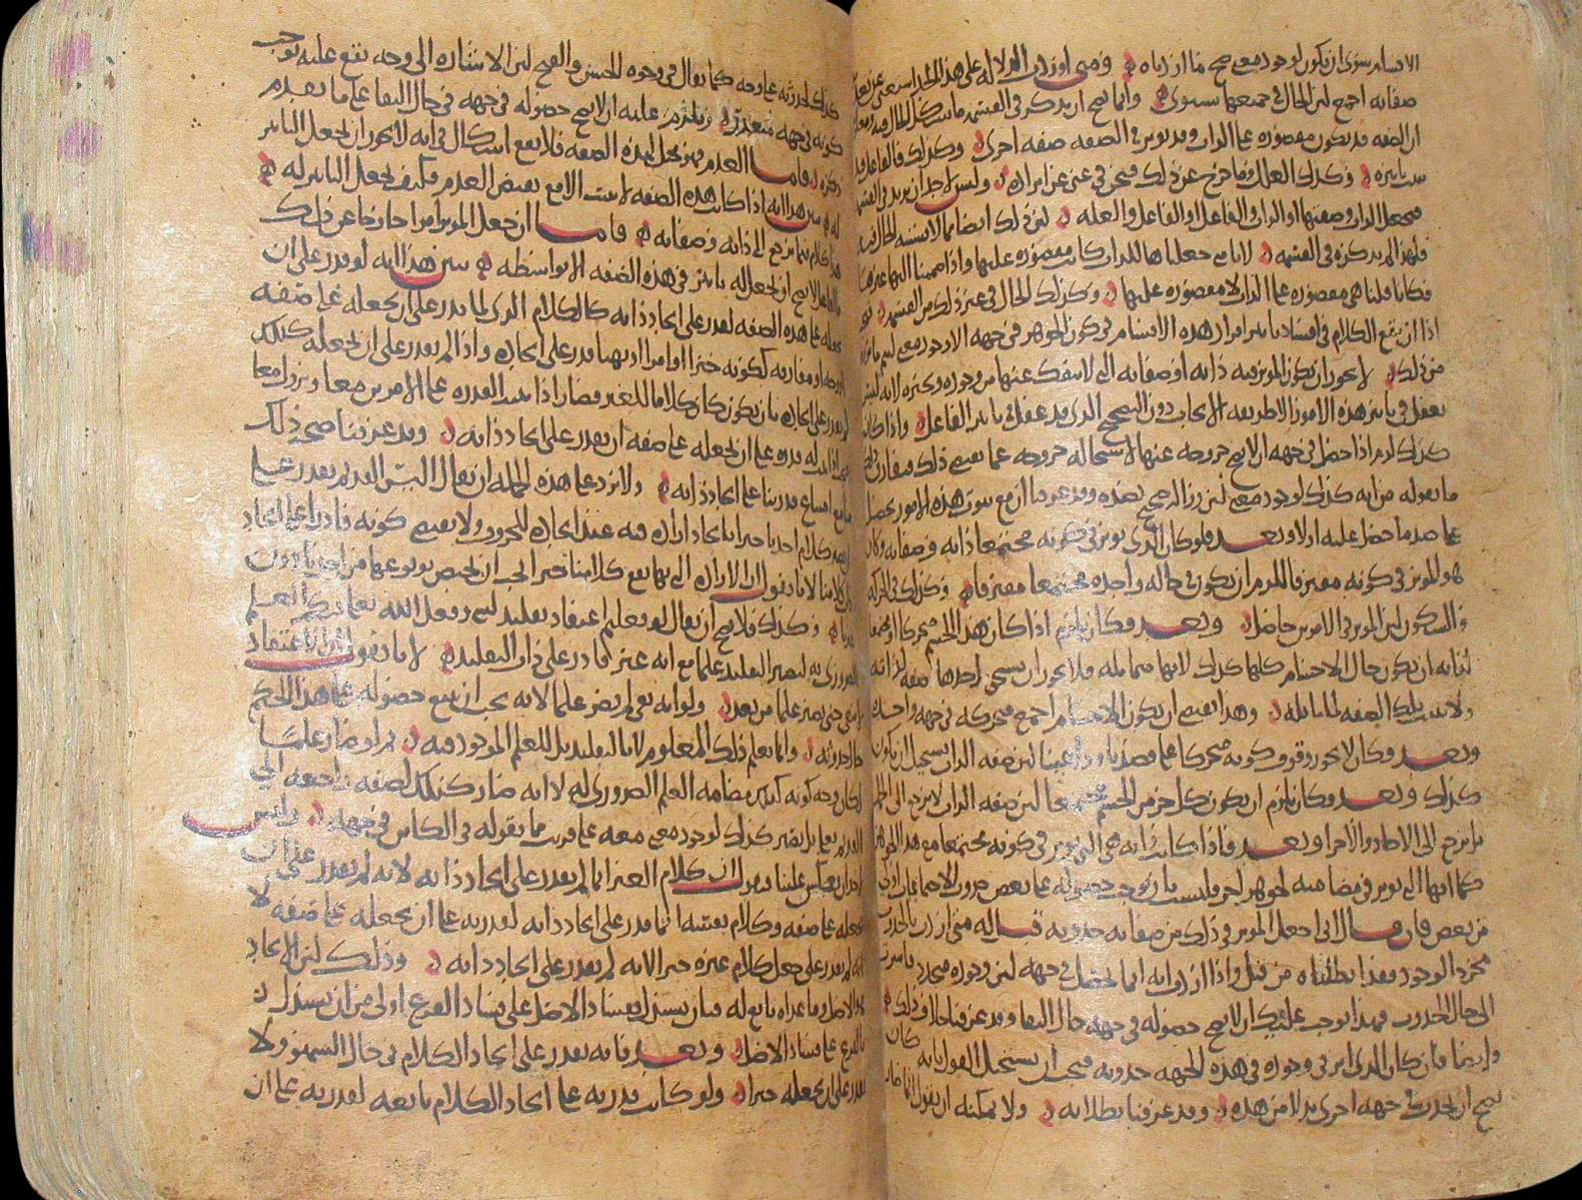 الاقسام سوى ان يكون لوجود معنى صح ما اردناه ومتى اوردت الدلالة على هذا الحد استغنى عن
صفاته اجمع لان الحال في جميعها سوى وانما يصح ان يذكر في القسمة ما
ان الصفة قد تكون مقصورة على الذات وقد يؤثر في الصفة صفة اخرى وكذلك فالفاعل قد
يثبت تاثيره وكذلك العلل وما خرج عن ذلك فنحن في غنى عن ايراده وليس لاحد ان يزيد في القسمة
فيجعل الذات وصفتها او الذات والفاعل او الفاعل والعلة لان ذلك ايضا مما لا يشتبه الحال فيه
فلهذا لم يذكره في القسمة لانا متى جعلناها للذات كانت مقصورة عليها واذا ضممنا اليها غيرها
فكانا قلنا هي مقصورة على الذات لا مقصورة عليها وكذلك الحال في غير ذلك من القسمة
اذا ان يقع الكلام في افساد تاثير امر من هذه الاقسام في كون الجوهر في جهة الا وجود معنى ليتم ما
من ذلك لا يجوز ان يكون المؤثر فيه ذاته او صفاته التي لا ينفك عنها من وجوده وتحيزه لانه ليس
يعقل في تاثير هذه الامور الا طريقة الايجاب دون التصحيح الذي قد عقل في تاثير الفاعل واذا كان
كذلك لزم اذا حصل في جهة ان لا يصح خروجه عنها لاستحالة خروجه عما يقتضي ذلك
ما نقوله من انه كذلك لوجود معنى لان زواله يصح بضده وقد عرفنا ان مع ثبوت هذه الامور يحصل
على ضد ما حصل عليه اولا وبعد فلو كان الذي يؤثر في كونه مجتمعا ذاته وصفاته وكان
هو المؤثر في كونه مفترقا للزم ان يكون في حالة واحدة مجتمعا مفترقا وكذلك في الحركة
والسكون لان المؤثر في الامرين حاصل وبعد فكان يلزم اذا كان هذا الجسم متحركا او مجتمعا
لذاته ان يكون حال الاجسام كلها كذلك لانها متماثلة فلا يجوز ان يستحق احدها صفة لذاته
ولا تثبت تلك الصفة لما ماثله وهذا يقتضي ان يكون الاجسام اجمع متحركة في جهة واحدة
وبعد فكان لا يجوز وقوف كونه متحركا على قصدنا ودواعينا لان صفة الذات يستحيل ان يكون
كذلك وبعد وكان يلزم ان يكون كل جزء من الجسم مجتمعا لان صفة الذات لا يرجع الى الجمل
بل يرجع الى الاحاد والاجزاء وبعد فاذا كانت ذاته هي التي تؤثر في كونه مجتمعا مع هذا الجوهر
كما انها التي تؤثر في مضامته لجوهر اخر فليست بان توجب حصوله على بعض ضروب الاجتماعات اولى
من بعض فان قال اني اجعل المؤثر في ذلك من صفاته حدوثه قيل له متى اردت بالحدوث
مجرد الوجود فقد ابطلناه من قبل واذا اردت انه انما يحصل في جهة لان وجوده متجدد
الى حال الحدوث فهذا يوجب عليك ان لا يصح حصوله في جهة حال البقاء وقد عرفنا خلاف ذلك
وايضا فان كان الذي اثر في وجوده في هذه الجهة حدوثه فيجب ان يستحيل القول بانه كان
يصح ان يحدث في جهة اخرى بدلا من هذه وقد عرفنا بطلانه ولا يمكنه ان يقول انما صار
كذلك لحدوثه على وجه كما يقال في وجوه الحسن والقبح لان الاشارة الى وجه يقع عليه يوجب
كونه في جهة متعذر ويلزم عليه ان لا يصح حصوله في جهة في حال البقاء على ما تقدم
ذكره فاما العدم فهو محيل لهذه الصفة فلا يقع اشكال في انه لا يجوز ان يجعل التاثير
له يبين هذا انه اذا كانت هذه الصفة لا تثبت الا مع نقيض العدم فكيف يجعل التاثير له
هذا كلام فيما يرجع الى ذاته وصفاته فاما ان جعل المؤثر امرا خارجا عن ذلك
فالفاعل لا يصح ان يجعل له تاثير في هذه الصفة الا بواسطة يبين هذا انه لو قدر على ان
يجعله على هذه الصفة لقدر على ايجاد ذاته كالكلام الذي لما قدر على ان يجعله على صفة
او مفارقة ككونه خبرا او امرا او نهيا قدر على ايجاده واذا لم يقدر على ان يجعله كذلك
لم يقدر على ايجاده بان يكون كان كلاما للغير فصار اذا ثبتت القدرة على الامرين معا ويزولا معا
له قدره على ان يجعله على صفة ان يقدر على ايجاد ذاته وقد عرفنا صحة ذلك
امتناع قدرتنا على ايجاد ذاته ولا يرد على هذه الجملة ان يقال اليس القديم يقدر على
كلام احدنا خبرا بايجاد ارادة فيه عند ايجاده للحروف ولا يقتضي كونه قادرا على ايجاد
كلامنا لانا نقول ان الارادة التي بها يقع كلامنا خبرا يجب ان يختص بوقوعها من احدنا دون
وكذلك فلا يصح ان يقال لو فعل فينا اعتقاد تقليد لشيء وفعل الله تعالى فينا العلم
الضروري به ليصير التقليد علما مع انه غير قادر على ذات التقليد لانا نقول ان الاعتقاد
لا يبقى حتى يصير علما من بعد ولو انه بقي لم يصر علما لانه يجب ان يقع حصوله على هذا الحكم
حال حدوثه وانما يعلم ذلك المعلوم لا بالتقليد بل للعلم الموجود فيه ثم لو صار علما
لكان وجه كونه كذلك مضامة العلم الضروري له لا انه صار كذلك لصفة راجعة الى
القديم تعالى بل يصير كذلك لوجود معنى معه على قريب مما نقوله في الكائن في جهة وليس
لاحد ان يعكس علينا فيقول ان كلام الغير انما لم يقدر على ايجاد ذاته لانه لم يقدر على ان
يجعله على صفة وكلام نفسه انما قدر على ايجاد ذاته لقدرته على ان يجعله على صفة لا
انه لم يقدر على جعل كلام غيره خبرا لانه لم يقدر على ايجاد ذاته وذلك لان الايجاد
هو الاصل وما عداه تابع له فبان يستدل بفساد الاصل على فساد الفرع اولى من ان يستدل
بالفرع على فساد الاصل وبعد فانه يقدر على ايجاد الكلام في حال السهو ولا
يقدر على ان يجعله خبرا ولو كانت قدرته على ايجاد الكلام تابعة لقدرته على ان